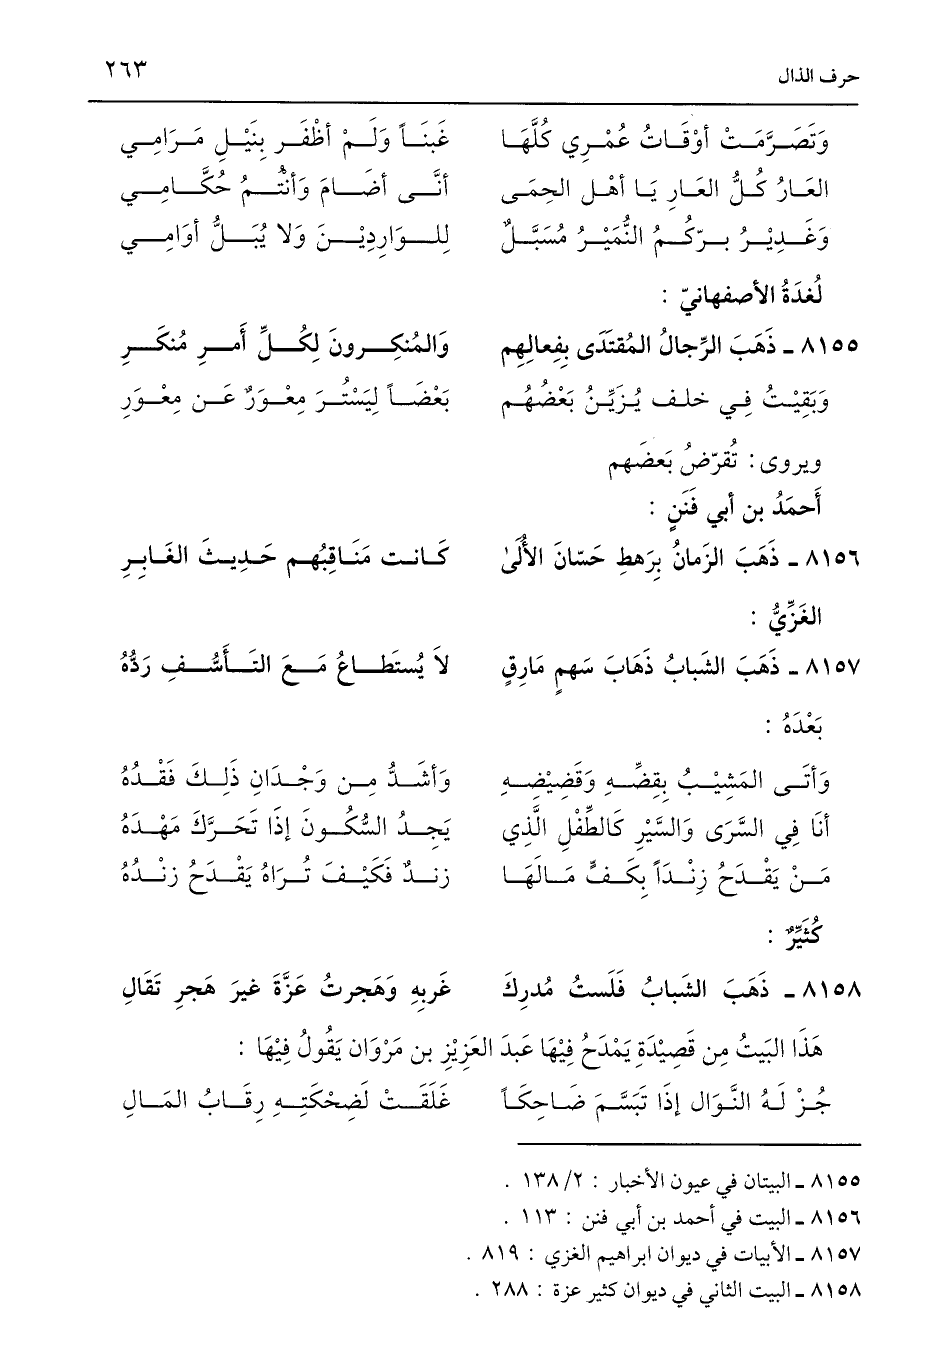 حرف الذال ٢٦٣
وَتَصَرَّمَتْ أوْقَاتُ عُمْرِي كُلَّهَا غَبَنَاً وَلَمْ أظْفَر بِنَيْلِ مَرَامِي
العَارُ كُلُّ العَارِ يَا أهْلِ الحِمَى أنَّى أضَامَ وَأنْتُمُ حُكَّامِي
وَغَدِيْرُ بِرّكُمُ النُّمَيْرُ مُسَبَّلٌ لِلوَارِدِيْنَ وَلا يُبَلُّ أوَامِي
لُغدَةُ الأصفهانيّ :
٨١٥٥ ـ ذَهَبَ الرِّجالُ المُقتَدَى بِفِعالِهِم وَالمُنكِرونَ لِكُلِّ أَمرِ مُنكَرِ
وَبَقِيْتُ فِي خلفٍ يُزَيِّنُ بَعْضُهُم بَعْضَاً لِيَسْتُرَ مِعْوَرٌ عَن مِعْوَرِ
ويروى : تُقرّضُ بَعضَهم
أَحمَدُ بن أبي فَنَنٍ :
٨١٥٦ ـ ذَهَبَ الزَمانُ بِرَهطِ حَسّانَ الأُلَى كَانت مَنَاقِبُهم حَدِيثَ الغَابِرِ
الغَزِّيُّ :
٨١٥٧ ـ ذَهَبَ الشَبابُ ذَهَابَ سَهمٍ مَارِقٍ لاَ يُستَطَاعُ مَعَ التَأَسُّفِ رَدُّهُ
بَعْدَهُ :
وَأتَى المَشِيْبُ بِقضِّهِ وَقَضِيْضِهِ وَأشَدُّ مِن وَجْدَانِ ذَلِكَ فَقْدُهُ
أنَا فِي السَّرَى وَالسَّيْرِ كَالطِّفْلِ الَّذِي يَجِدُ السُّكُونَ إذَا تَحَرَّكَ مَهْدَهُ
مَنْ يَقْدَحُ زِنْدَاً بِكَفٍّ مَالَهَا زِندٌ فَكَيْفَ تُرَاهُ يَقْدَحُ زِنْدُهُ
كُثَيّرٌ :
٨١٥٨ ـ ذَهَبَ الشَبابُ فَلَستُ مُدرِكَ غَربِهِ وَهَجرتُ عَزَّةَ غيرَ هَجرِ تَقَالِ
هَذَا البَيتُ مِن قَصِيْدَةٍ يَمْدَحُ فِيْهَا عَبدَ العَزِيْزِ بن مَرْوَان يَقُولُ فِيْهَا :
جُزْ لَهُ النَّوَالِ إذَا تَبَسَّمَ ضَاحِكَاً غَلَقَتْ لَضِحْكَتِهِ رِقَابُ المَالِ
٨١٥٥ ـ البيتان في عيون الأخبار : ٢/ ١٣٨ .
٨١٥٦ ـ البيت في أحمد بن أبي فنن : ١١٣ .
٨١٥٧ ـ الأبيات في ديوان ابراهيم الغزي : ٨١٩ .
٨١٥٨ ـ البيت الثاني في ديوان كثير عزة : ٢٨٨ .